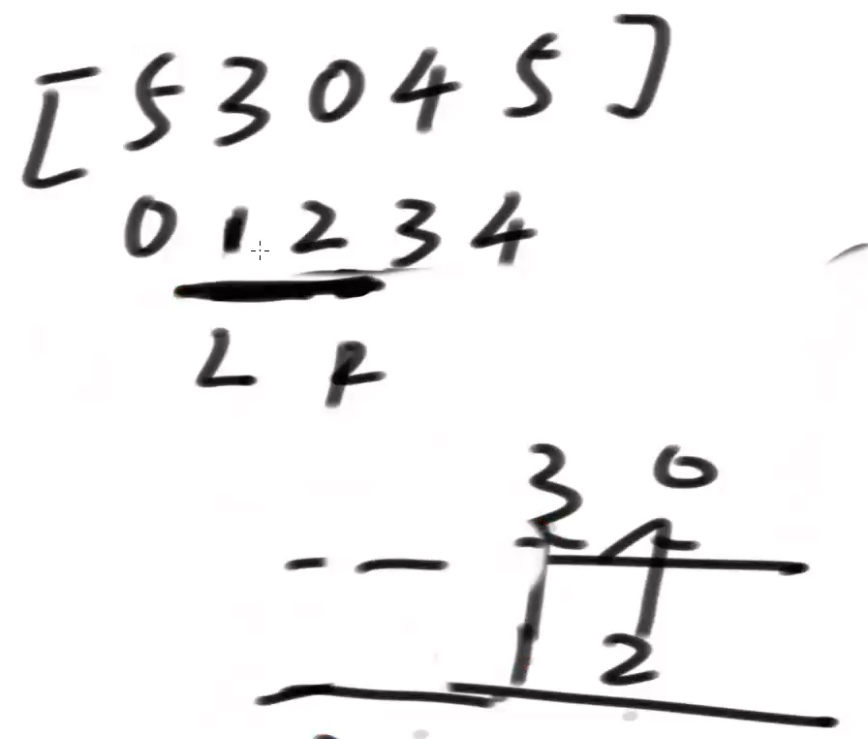 [ 5 3 0 4 5 ]
0 1 2 3 4
L R
3 0
1 2